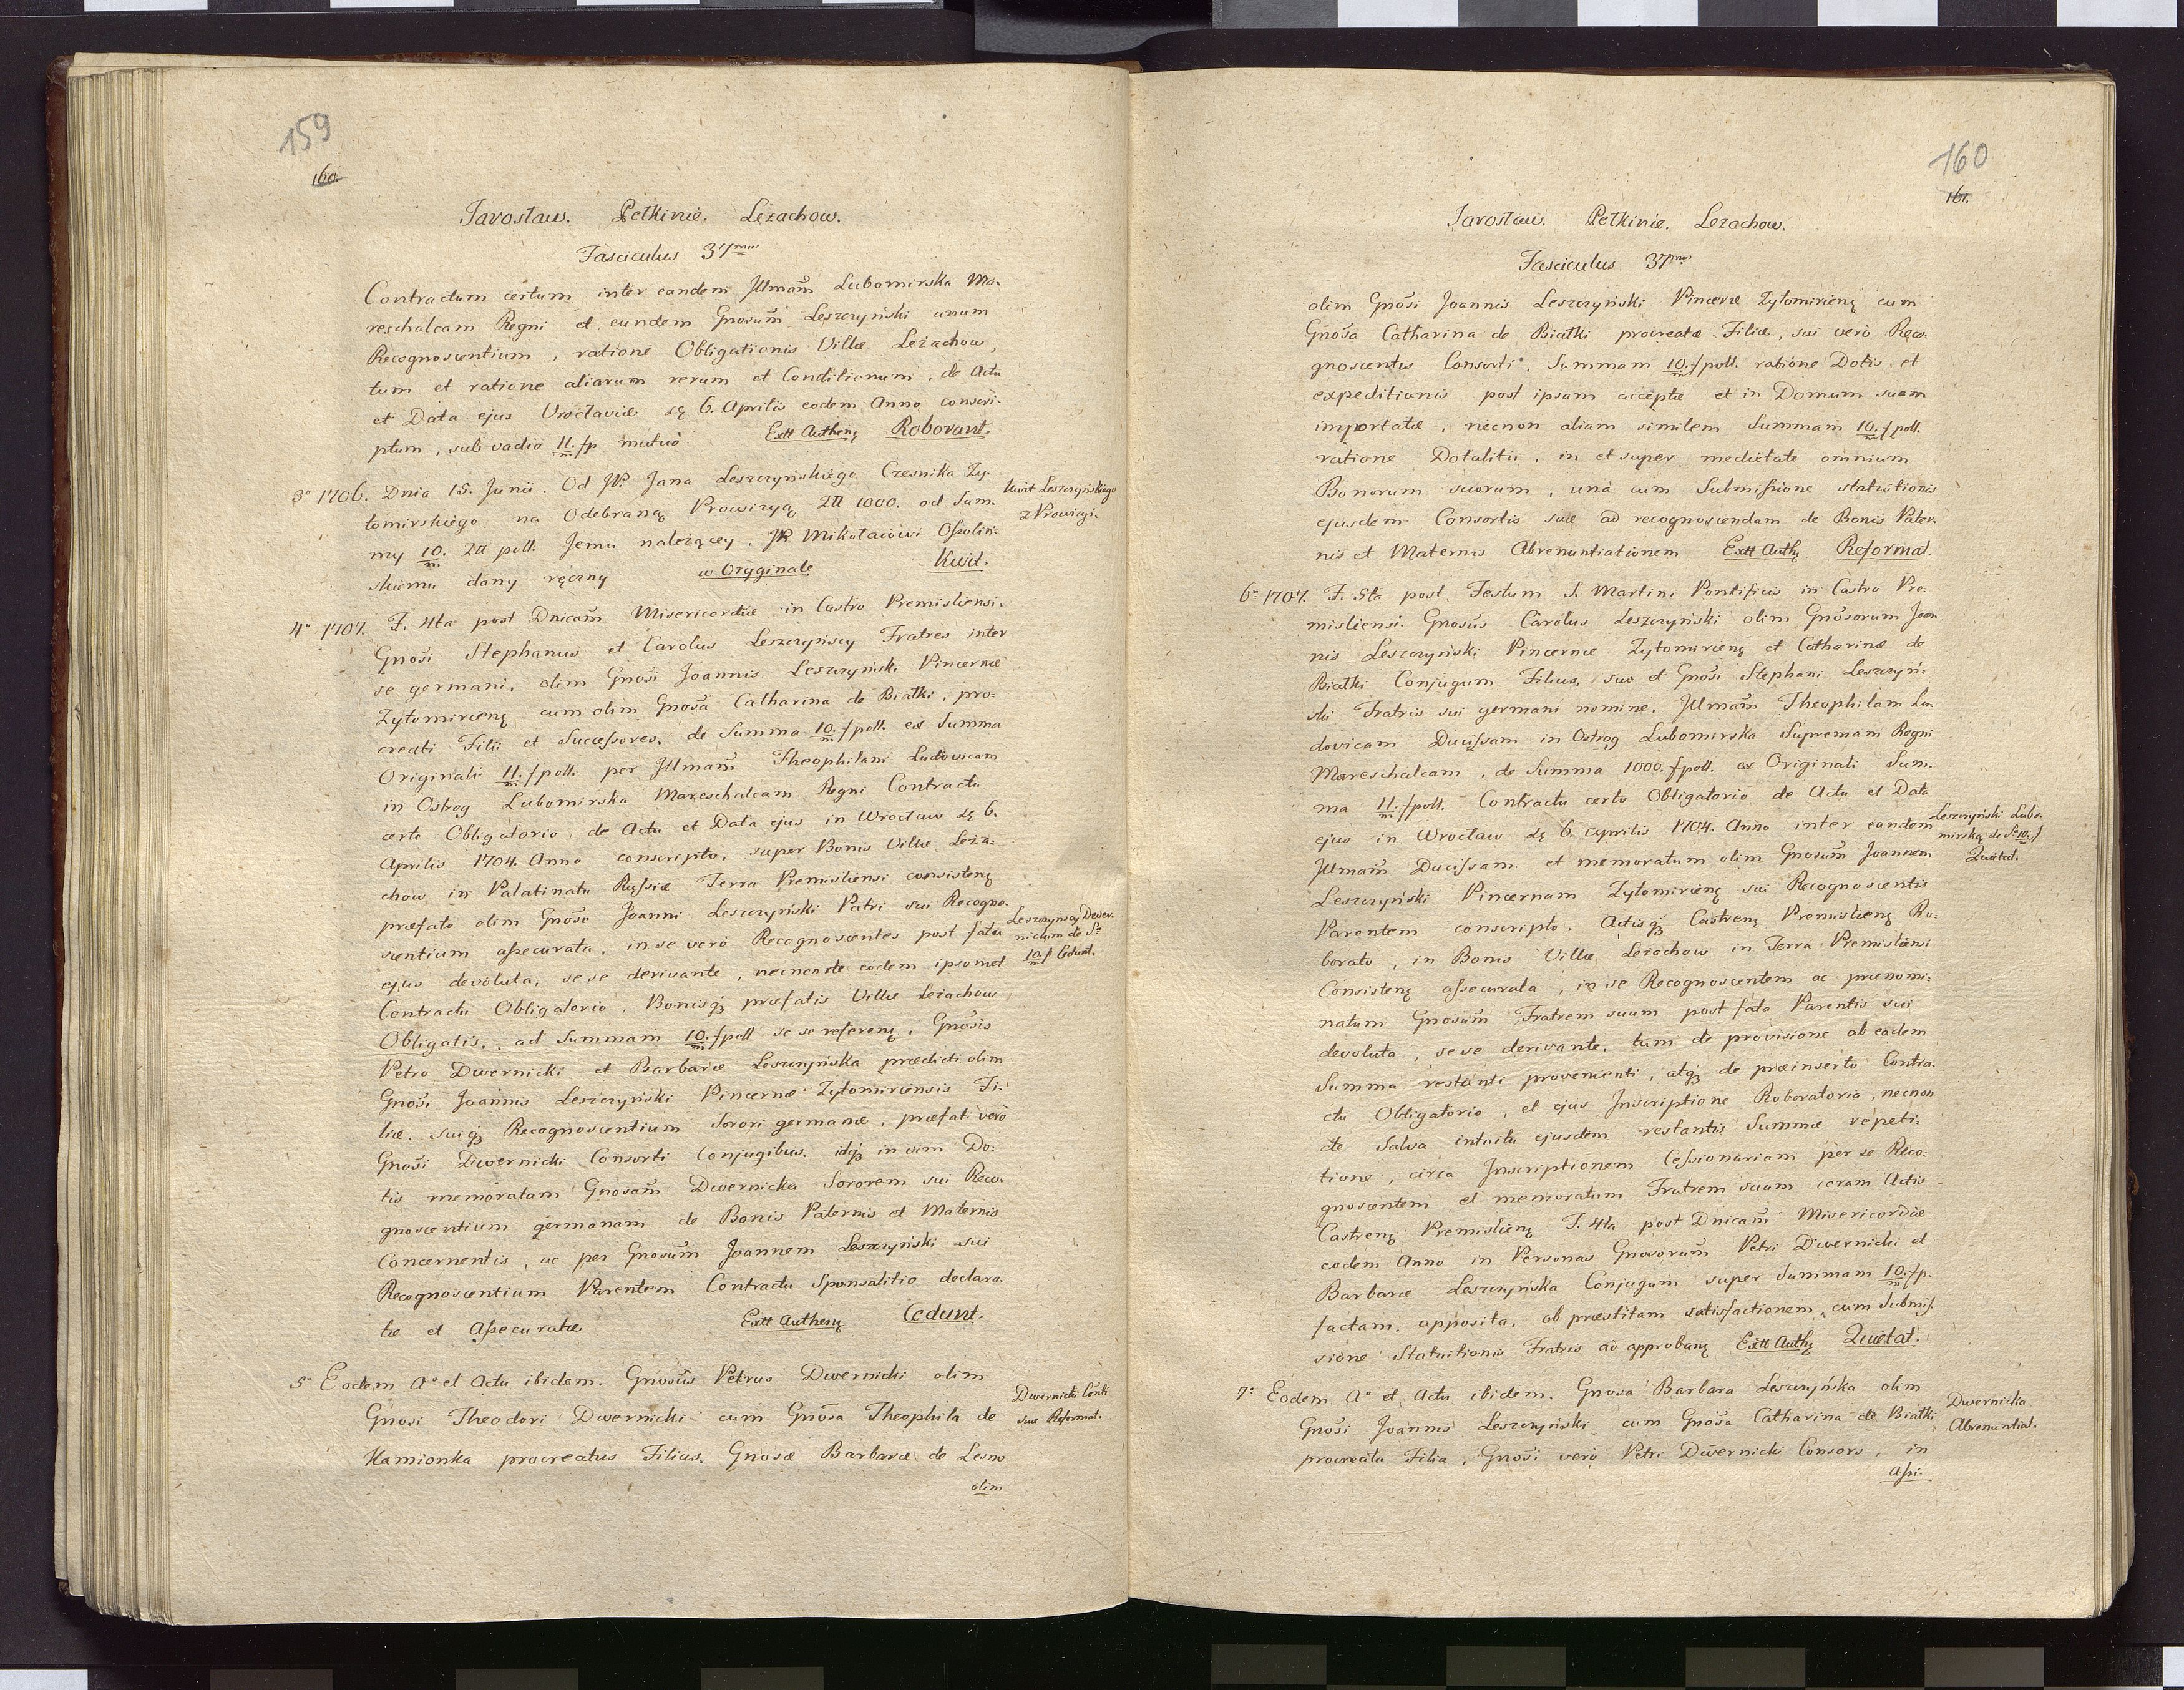 159
160.
Jarosław. Pełkinie. Leżachow.
Fasciculus 37mus
Contractum certum inter eandem Jllmam̃ Lubomirska Ma-
reschalcam Regni et eundem Gnosum̃ Leszczyński unum
Recognoscentium, ratione Obligationis Villæ Leżachow,
tum et ratione aliarum rerum et Conditionum, de Actu
et Data ejus Vroctaviæ 6. Aprilis eodem Anno conscri-
ptum, sub vadio 11./m f p mutuo Extt Autheng Roborant.
3o 1706. Dnia 15. Junii. Od JP. Jana Leszczyńskiego Czesnika Zy-
tomirskiego na Odebraną Prowizyą Zll 1000. od Sum-
my 10./m Zll poll. Jemu należącey. JP Mikołaiowi Ossoliń-
skiemu dany ręczny w Oryginale Kwit.
Kwit Leszczyńskiego
z Prowizyi.
4o 1707. F. 4ta post Dnicam̃ Misericordiæ in Castro Premisliensi.
Gnosi Stephanus et Carolus Leszczyńscy Fratres inter
se germani, olim Gnosi Joannis Leszczyński Pincernæ
Zytomirceng cum olim Gnosa Catharina de Białki, pro-
creati Filii et Successores, de Summa 10./m f poll. ex Summa
Originali 11./m f poll. per Jllmam̃ Theophilam Ludovicam
in Ostrog Lubomirska Mareschalcam Regni Contractu
certo Obligatorio de Actu et Data ejus in Wrocław 6.
Aprilis 1704. Anno conscripto, super Bonis Villæ Leża-
chow in Palatinatu Russiæ Terra Premisliensi consisteng
præfato olim Gnoso Joanni Leszczyński Patri sui Recogno-
scentium assecurata, in se verò Recognoscentes post fata
ejus devoluta, sese derivante, necnon de eodem ipsomet
Contractu Obligatorio, Bonisq præfatis Villæ Leżachow
Obligatis, ad Summam 10./m f poll se se refereng, Gnosis
Petro Dwernicki et Barbaræ Leszczyńska prædicti olim
Gnosi Joannis Leszczyński Pincernæ Zytomirciensis Fi-
liæ, suiq Recognoscentium Sorori germanæ, præfati verò
Gnosi Dwernicki Consorti Conjugibus, idq in vim Do-
tis memoratam Gnosam̃ Dwernicka Sororem sui Reco-
gnoscentium germanam de Bonis Paternis et Maternis
Concernentis, ac per Gnosum̃ Joannem Leszczyński sui
Recognoscentium Parentem Contractu Sponsalitio declara-
tæ et Assecuratæ Extt Autheng Cedunt.
Leszczynscy Dwer-
nickim de Sa
10./m f Cedunt.
5o Eodem Ao et Actu ibidem. Gnosus Petrus Dwernicki olim
Gnosi Theodori Dwernicki cum Gnosa Theophila de
Kamionka procreatus Filius, Gnosæ Barbaræ de Leszno
olim
Dwernicki Conti
suæ Reformat.
160
161.
Jarosław. Pełkinie. Leżachow.
Fasciculus 37mus
olim Gnosi Joannis Leszczyński Pincernæ Zytomirieng cum
Gnosa Catharina de Białki procreatæ Filiæ, sui verò Reco-
gnoscentis Consorti, Summam 10./m f poll. ratione Dotis, et
expeditionis post ipsam acceptæ et in Domum suam
importatæ, necnon aliam similem Summam 10./m f poll.
ratione Dotalitii, in et super medietate omnium
Bonorum suorum, unà cum Submissione statuitionis
ejusdem Consortis suæ ad recognoscendam de Bonis Pater-
nis et Maternis Abrenuntiationem Extt Authg Reformat.
6o 1707. F. 5ta post Festum S. Martini Pontificis in Castro Pre-
misliensi. Gnosus Carolus Leszczyński olim Gnosorum Joan-
nis Leszczyński Pincernæ Zytomircieng et Catharinæ de
Białki Conjugum Filius, suo et Gnosi Stephani Leszczyń-
ski Fratris sui germani nomine, Jllmam̃ Theophilam Lu-
dovicam Ducissam in Ostrog Lubomirska Supremam Regni
Mareschalcam, de Summa 1000. f poll. ex Originali Sum-
ma 11./m f poll. Contractu certo Obligatorio de Actu et Data
ejus in Wrocław 6. Aprilis 1704. Anno inter eandem
Jllmam̃ Ducissam et memoratum olim Gnosum̃ Joannem
Leszczyński Pincernam Zytomirceng sui Recognoscentis
Parentem conscripto, Actisq Castreng Premislieng Ro-
borato, in Bonis Villæ Leżachow in Terra Premisliensi
Consisteng assecurata, in se Recognoscentem ac prænomi-
natum Gnosum̃ Fratrem suum post fata Parentis sui
devoluta, sese derivante, tum de provisione ab eadem
Summa restanti provenienti, atq de præinserto Contra-
ctu Obligatorio, et ejus Jnscriptione Roboratoria, necnon
de Salva intuitu ejusdem restantis Summæ repeti-
tione, circa Jnscriptionem Cessionariam per se Reco-
gnoscentem et memoratum Fratrem suum coram Actis
Castreng Premislieng F. 4ta post Dnicam̃ Misericordiæ
eodem Anno in Personas Gnosorum̃ Petri Dwernicki et
Barbaræ Leszczyńska Conjugum super Summam 10./m f p.
factam, apposita, ob præstitam satisfactionem, cum Submis-
sione Statuitionis Fratris ad approbang Extt Authg Quietat.
Leszczyński Lubo-
mirską de Sa 10./m f
Quietat.
7o Eodem Ao et Actu ibidem. Gnosa Barbara Leszczyńska olim
Gnosi Joannis Leszczyński cum Gnosa Catharina de Białki
procreata Filia, Gnosi verò Petri Dwernicki Consors, in
assi-
Dwernicka
Abrenuntiat.